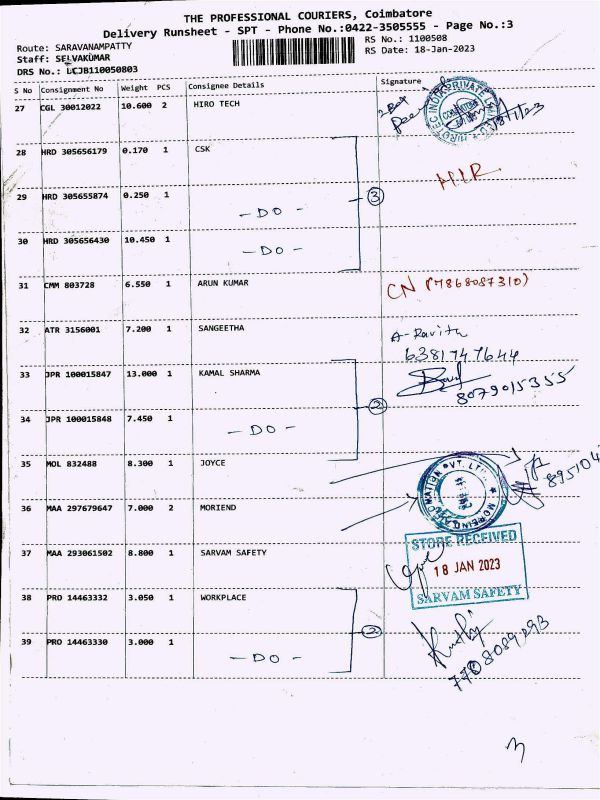 THE PROFESSIONAL COURIERS, Coimbatore
Delivery Runsheet - SPT - Phone No.:0422-3505555 - Page No.:3
Route: SARAVANAMPATTY
RS No.: 1100508
Staff: SELVAKUMAR
RS Date: 18-Jan-2023
DRS No.: LCJB110050803
S No Consignment No Weight PCS Consignee Details Signature
27 CGL 30012022 10.600 2 HIRO TECH
28 HRD 305656179 0.170 1 CSK
29 HRD 305655874 0.250 1 - DO - 3
30 HRD 305656430 10.450 1 - DO -
31 CMM 803728 6.550 1 ARUN KUMAR CN (7868087310)
32 ATR 3156001 7.200 1 SANGEETHA A-Ravith
6381747644
33 JPR 100015847 13.000 1 KAMAL SHARMA
8079015355
34 JPR 100015848 7.450 1 - DO - 2
35 MOL 832488 8.300 1 JOYCE
895104
36 MAA 297679647 7.000 2 MORIEND
37 MAA 293061502 8.800 1 SARVAM SAFETY
STORE RECEIVED
18 JAN 2023
SARVAM SAFETY
38 PRO 14463332 3.050 1 WORKPLACE 2
39 PRO 14463330 3.000 1 - DO -
7708089293
3